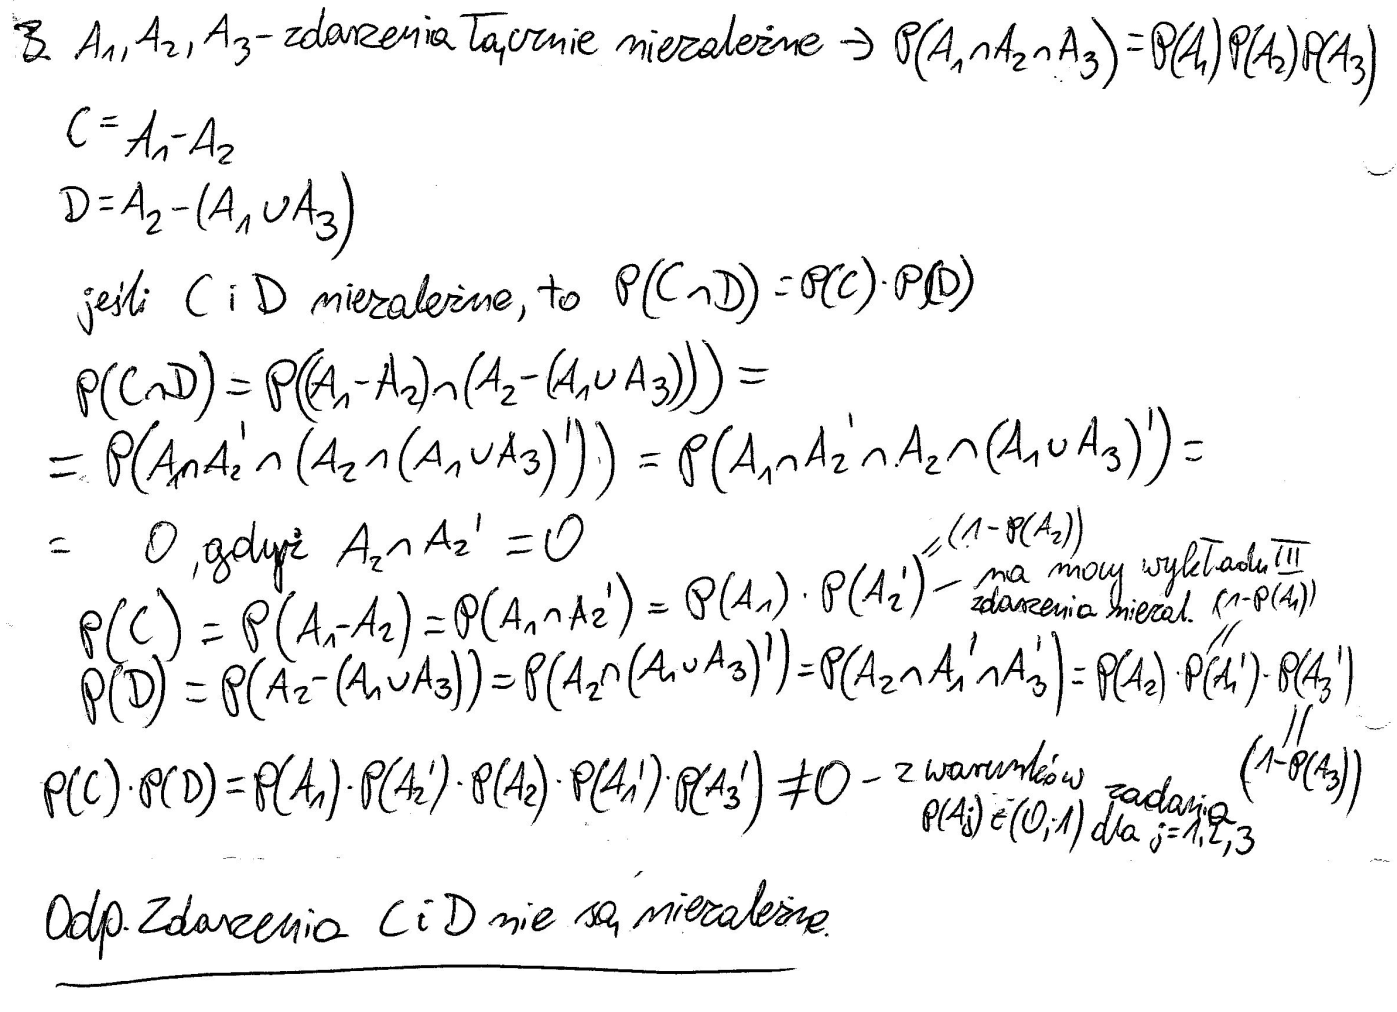 3. A₁, A₂, A₃ - zdarzenia łącznie niezależne → P(A₁∩A₂∩A₃) = P(A₁)P(A₂)P(A₃)
C = A₁-A₂
D = A₂-(A₁∪A₃)
jeśli C i D niezależne, to P(C∩D) = P(C)·P(D)
P(C∩D) = P((A₁-A₂)∩(A₂-(A₁∪A₃))) =
= P(A₁∩A₂'∩(A₂∩(A₁∪A₃)')) = P(A₁∩A₂'∩A₂∩(A₁∪A₃)') =
= 0, gdyż A₂∩A₂' = 0
= (1-P(A₂))
P(C) = P(A₁-A₂) = P(A₁∩A₂') = P(A₁)·P(A₂') - na mocy wykładu III
zdarzenia niezal. (1-P(A₁))
P(D) = P(A₂-(A₁∪A₃)) = P(A₂∩(A₁∪A₃)') = P(A₂∩A₁'∩A₃') = P(A₂)·P(A₁')·P(A₃')
(1-P(A₃))
P(C)·P(D) = P(A₁)·P(A₂')·P(A₂)·P(A₁')·P(A₃') ≠ 0 - z warunków zadania
P(Aj) ∈ (0;1) dla j=1,2,3
Odp. Zdarzenia C i D nie są niezależne.